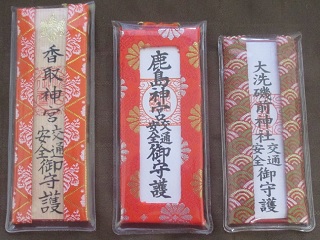 香取神宮交通安全御守護
鹿島神宮交通安全御守護
大洗磯前神社交通安全御守護